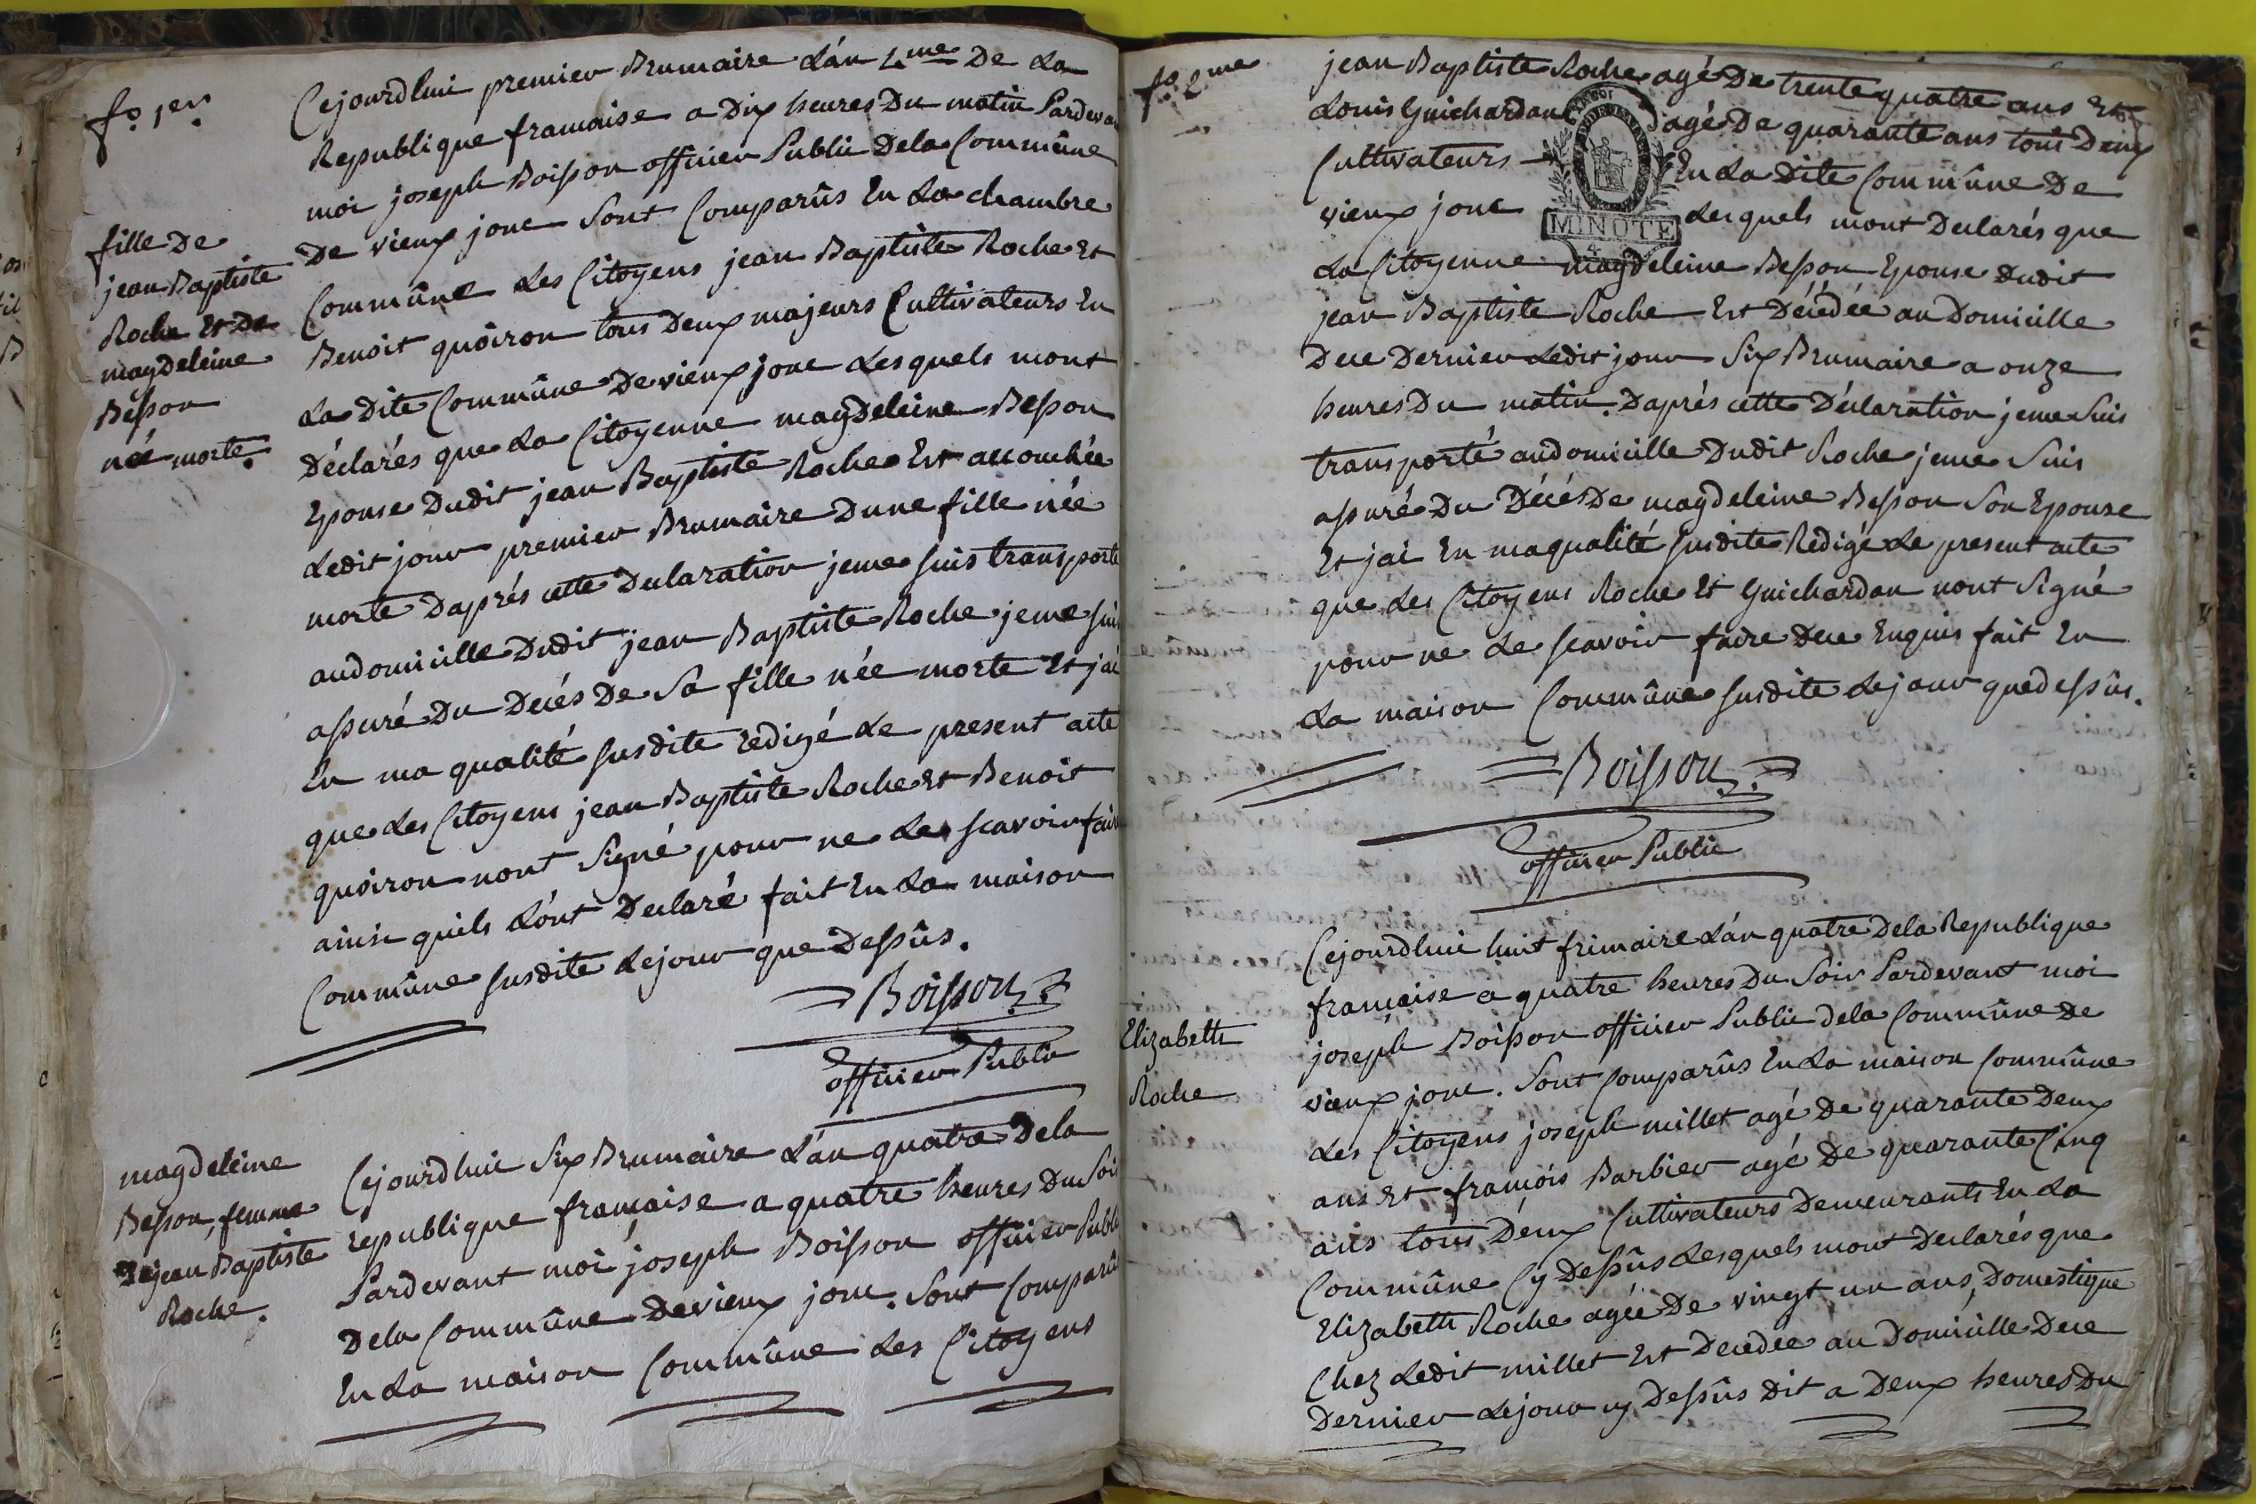 fo 1er.
Cejourdhui premier Brumaire L'an 4me De La
Republique francaise a Dix heures Du matin Pardevan
moi joseph Boisson officier Public Dela Commûne
De vieux jonc Sont Comparûs En La chambre
Commûne Les Citoyens jean Baptiste Roche Et
Benoit quoiron tous Deux majeurs Cultivateurs En
La Dite Commûne De vieux jonc Lesquels mont
Déclarés que La Citoyenne magdeleine Besson
Epouse Dudit jean Baptiste Roche Est accouchée
Ledit jour premier Brumaire Dune fille née
morte Daprés cette Declaration jeme suis transporté
audomicille Dudit jean Baptiste Roche jeme suis
assuré Du Decés De Sa fille née morte Et jai
En ma qualité susdite redigé Le present acte
que Les Citoyens jean Baptiste Roche Et Benoit
quoiron nont Signé pour ne Le scavoir faire
ainsi quils L'ont Declaré fait En La maison
Commûne susdite Lejour que Dessûs.
Boisson
officier Public
fille De
jean Baptiste
Roche Et De
magdeleine
Besson
née morte.
magdeleine
Besson, femme
De jean Baptiste
Roche.
Cejourdhui Six Brumaire L'an quatre Dela
republique francaise a quatre heures Du Soir
Pardevant moi joseph Boisson officier Public
Dela Commûne De vieux jonc. Sont Comparûs
En La maison Commûne Les Citoyens
fo 2me
jean Baptiste Roche agé De trente quatre ans Et
Louis Guichardan agé De quarante ans tous Deux
Cultivateurs En La Dite Commûne De
vieux jonc Lesquels mont Declarés que
MINUTE
La Citoyenne magdeleine Besson Epouse Dudit
jean Baptiste Roche Est Décédée au Domicille
Dece Dernier Ledit jour Six Brumaire a onze
heures Du matin. Daprés cette Déclaration jeme Suis
transporté audomicille Dudit Roche jeme Suis
assuré Du Décés De magdeleine Besson Son Epouse
Et jai En maqualité susdite Redigé Le present acte
que Les Citoyens Roche Et Guichardan nont Signé
pour ne Le scavoir faire Dece Enquis fait En
La maison Commûne susdite Lejour quedessûs.
Boisson
officier Public
Elizabeth
Roche
Cejourdhui huit frimaire L'an quatre Dela Republique
francaise a quatre heures Du Soir Pardevant moi
joseph Boisson officier Public dela Commûne De
vieux jonc. Sont Comparûs En La maison Commûne
Les Citoyens joseph millet agé De quarante Deux
ans Et francois Barbier agé De quarante Cinq
ans tous Deux Cultivateurs Demeurants En La
Commûne Cy Dessûs Lesquels mont Declarés que
Elizabeth Roche agée De vingt un ans, Domestique
Chez Ledit millet Est Decedée au Domicille Dece
Dernier Lejour cy Dessûs dit a Deux heures Du